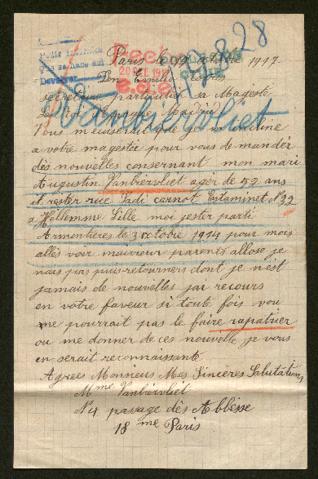 Paris le
1917
20 DEC 191
828
Don Emilio
secretaire particulier sa Majesté
Vanbiervliet
Vous m'excuserait de
a votre magestie pour vous de mandér
dés nouvelles consernant mon mari
Augustin Vanbiervliet agér de 52 ans
et rester rue Sadi carnot Estaminet N 32
a Hellemme Lille moi jester parti
Armentières le 3 octobre 1914 pour mois
allés voir mauvoir parents allose je
nais pas puis retourners dont je n'est
jamais de nouvelles jai recours
en votre faveur si toute fois vou
me pourrait pas le faire rapatrier
ou me donner de ces nouvelle je vous
en serait reconnaissant
Agrees Monsieur Mes Sincères Salutations
Mme Vanbiervliet
N 4 pasage dès Abbèsse
18 me Paris